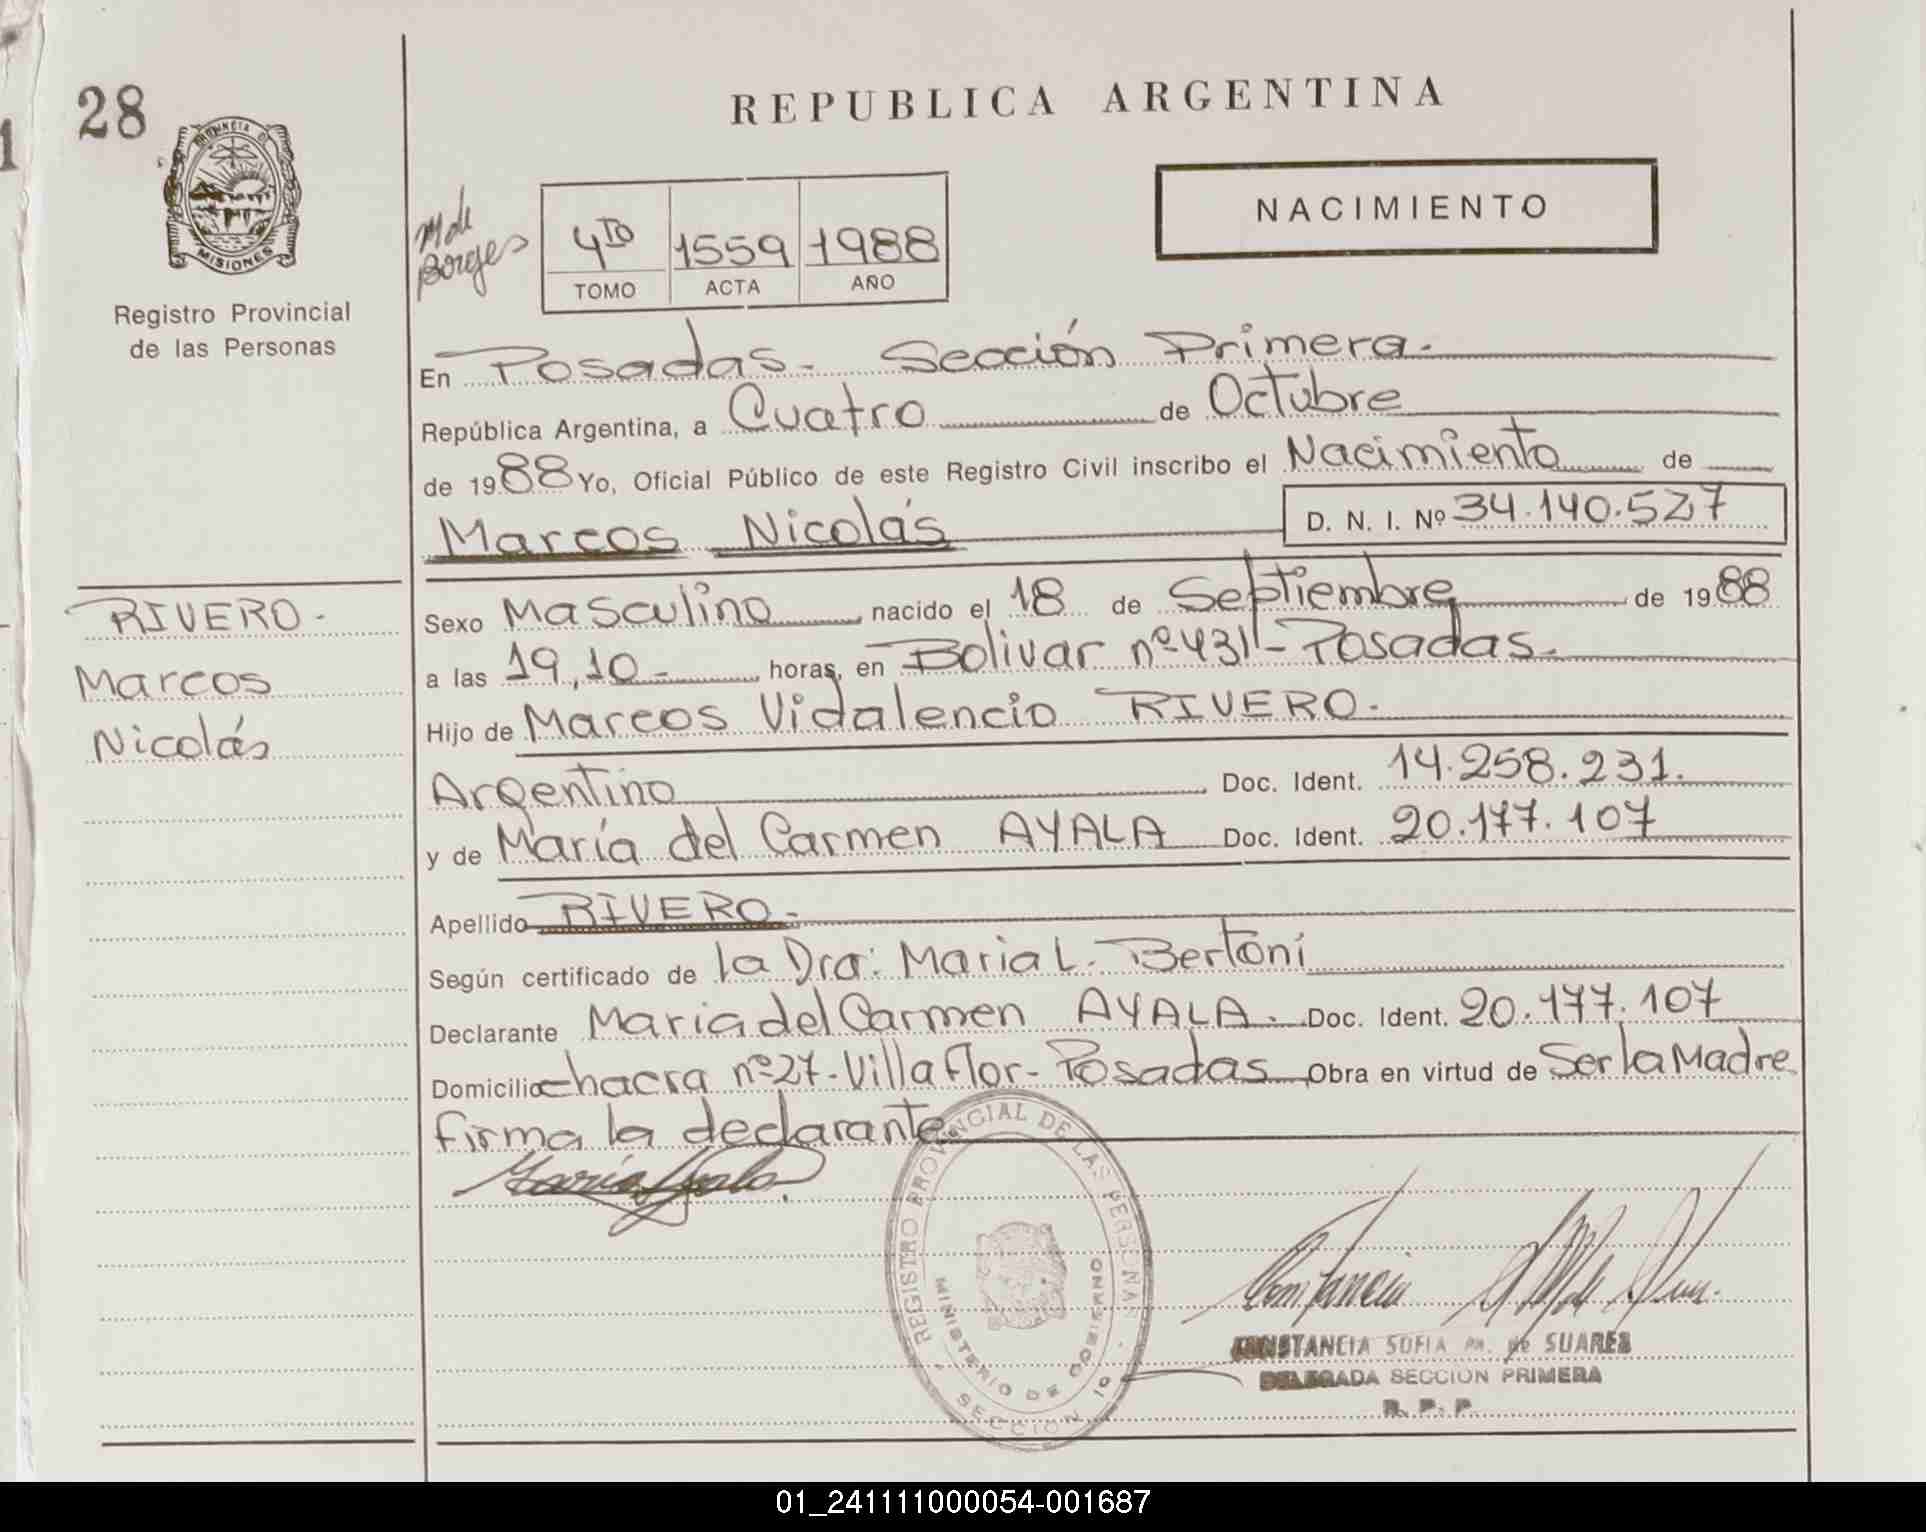 28
1
PROVINCIA DE
MISIONES
Registro Provincial
de las Personas
REPUBLICA ARGENTINA
M de
Borges
4TO 1559 1988
TOMO ACTA AÑO
NACIMIENTO
En Posadas - Sección Primera.
República Argentina, a Cuatro de Octubre
de 1988 Yo, Oficial Público de este Registro Civil inscribo el Nacimiento de
Marcos Nicolás D. N. I. Nº 34.140.527
RIVERO -
Marcos
Nicolás
Sexo Masculino nacido el 18 de Septiembre de 1988
a las 19,10 - horas, en Bolivar nº 431 - Posadas.
Hijo de Marcos Vidalencio RIVERO.
Argentino Doc. Ident. 14.258.231.
y de María del Carmen AYALA Doc. Ident. 20.177.107
Apellido RIVERO -
Según certificado de la Dra: Maria L. Bertoni
Declarante Maria del Carmen AYALA. Doc. Ident. 20.177.107
Domicilio chacra nº 27 - Villa Flor - Posadas Obra en virtud de Ser la Madre
firma la declarante.
María Ayala.
REGISTRO PROVINCIAL DE LAS PERSONAS
MINISTERIO DE GOBIERNO
SECCION 1ª
CONSTANCIA SOFIA M. de SUAREZ
DELEGADA SECCION PRIMERA
R. P. P.
01_241111000054-001687